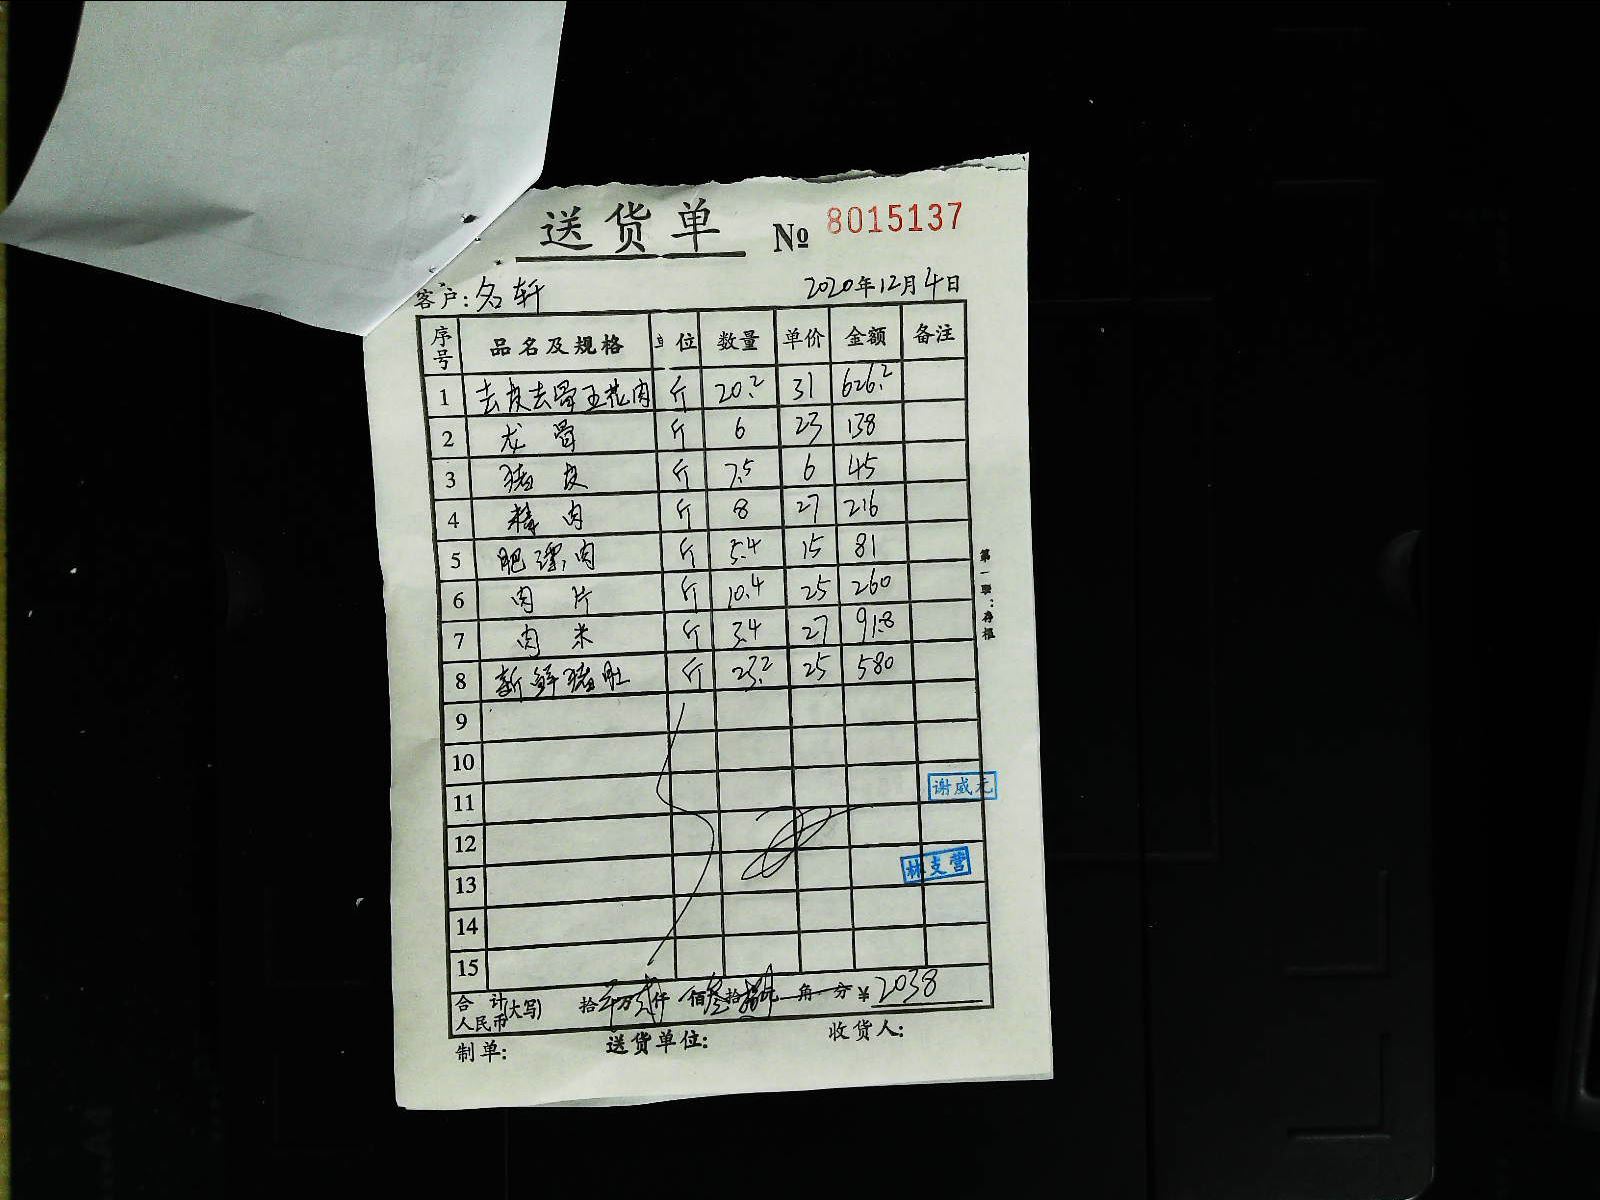 送货单 № 8015137
客户: 名轩 2020年12月4日
序号 品名及规格 单位 数量 单价 金额 备注
1 去皮去骨五花肉 斤 20.2 31 626.2
2 龙骨 斤 6 23 138
3 猪皮 斤 7.5 6 45
4 精肉 斤 8 27 216
5 肥漂肉 斤 5.4 15 81
6 肉片 斤 10.4 25 260
7 肉米 斤 3.4 27 91.8
8 新鲜猪肚 斤 23.2 25 580
9
10
11
谢威元
12
13
林支营
14
15
合计人民币(大写) 拾 万 仟 佰叁拾 元 角 分 ¥2038
制单: 送货单位: 收货人:
第一联:存根